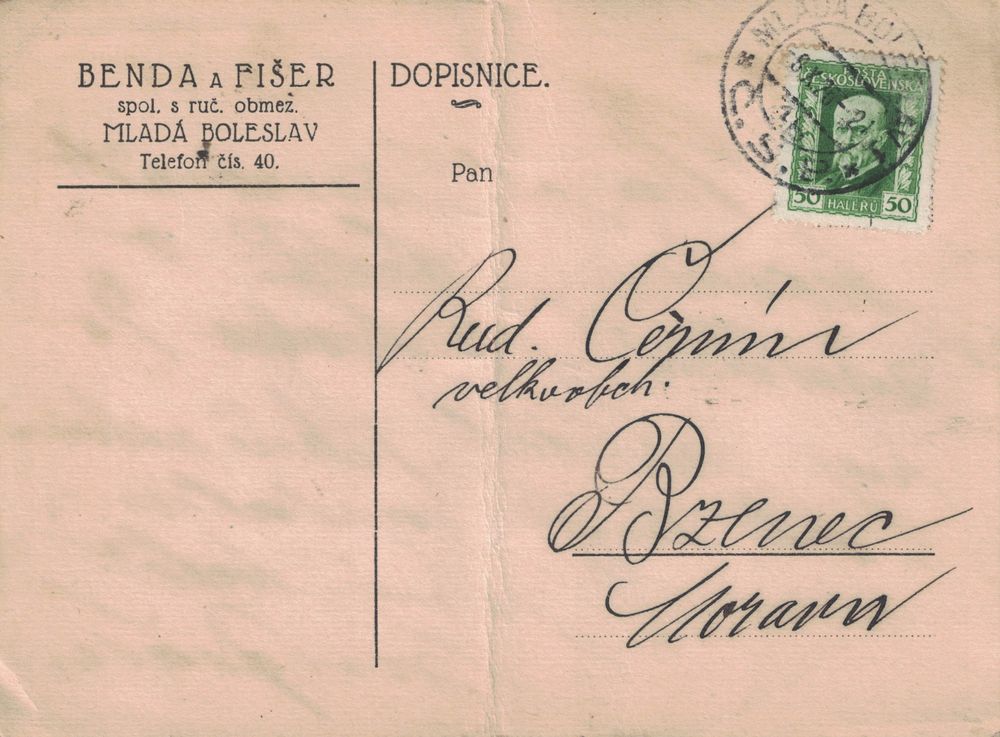 BENDA A FIŠER
spol. s ruč. obmez.
MLADÁ BOLESLAV
Telefon čís. 40.
DOPISNICE.
Pan
MLADÁ BOL
POŠTA
ČESKOSLOVENSKÁ
50 HALÉŘŮ 50
Rud.
velkoobch.
Bzenec
Morava